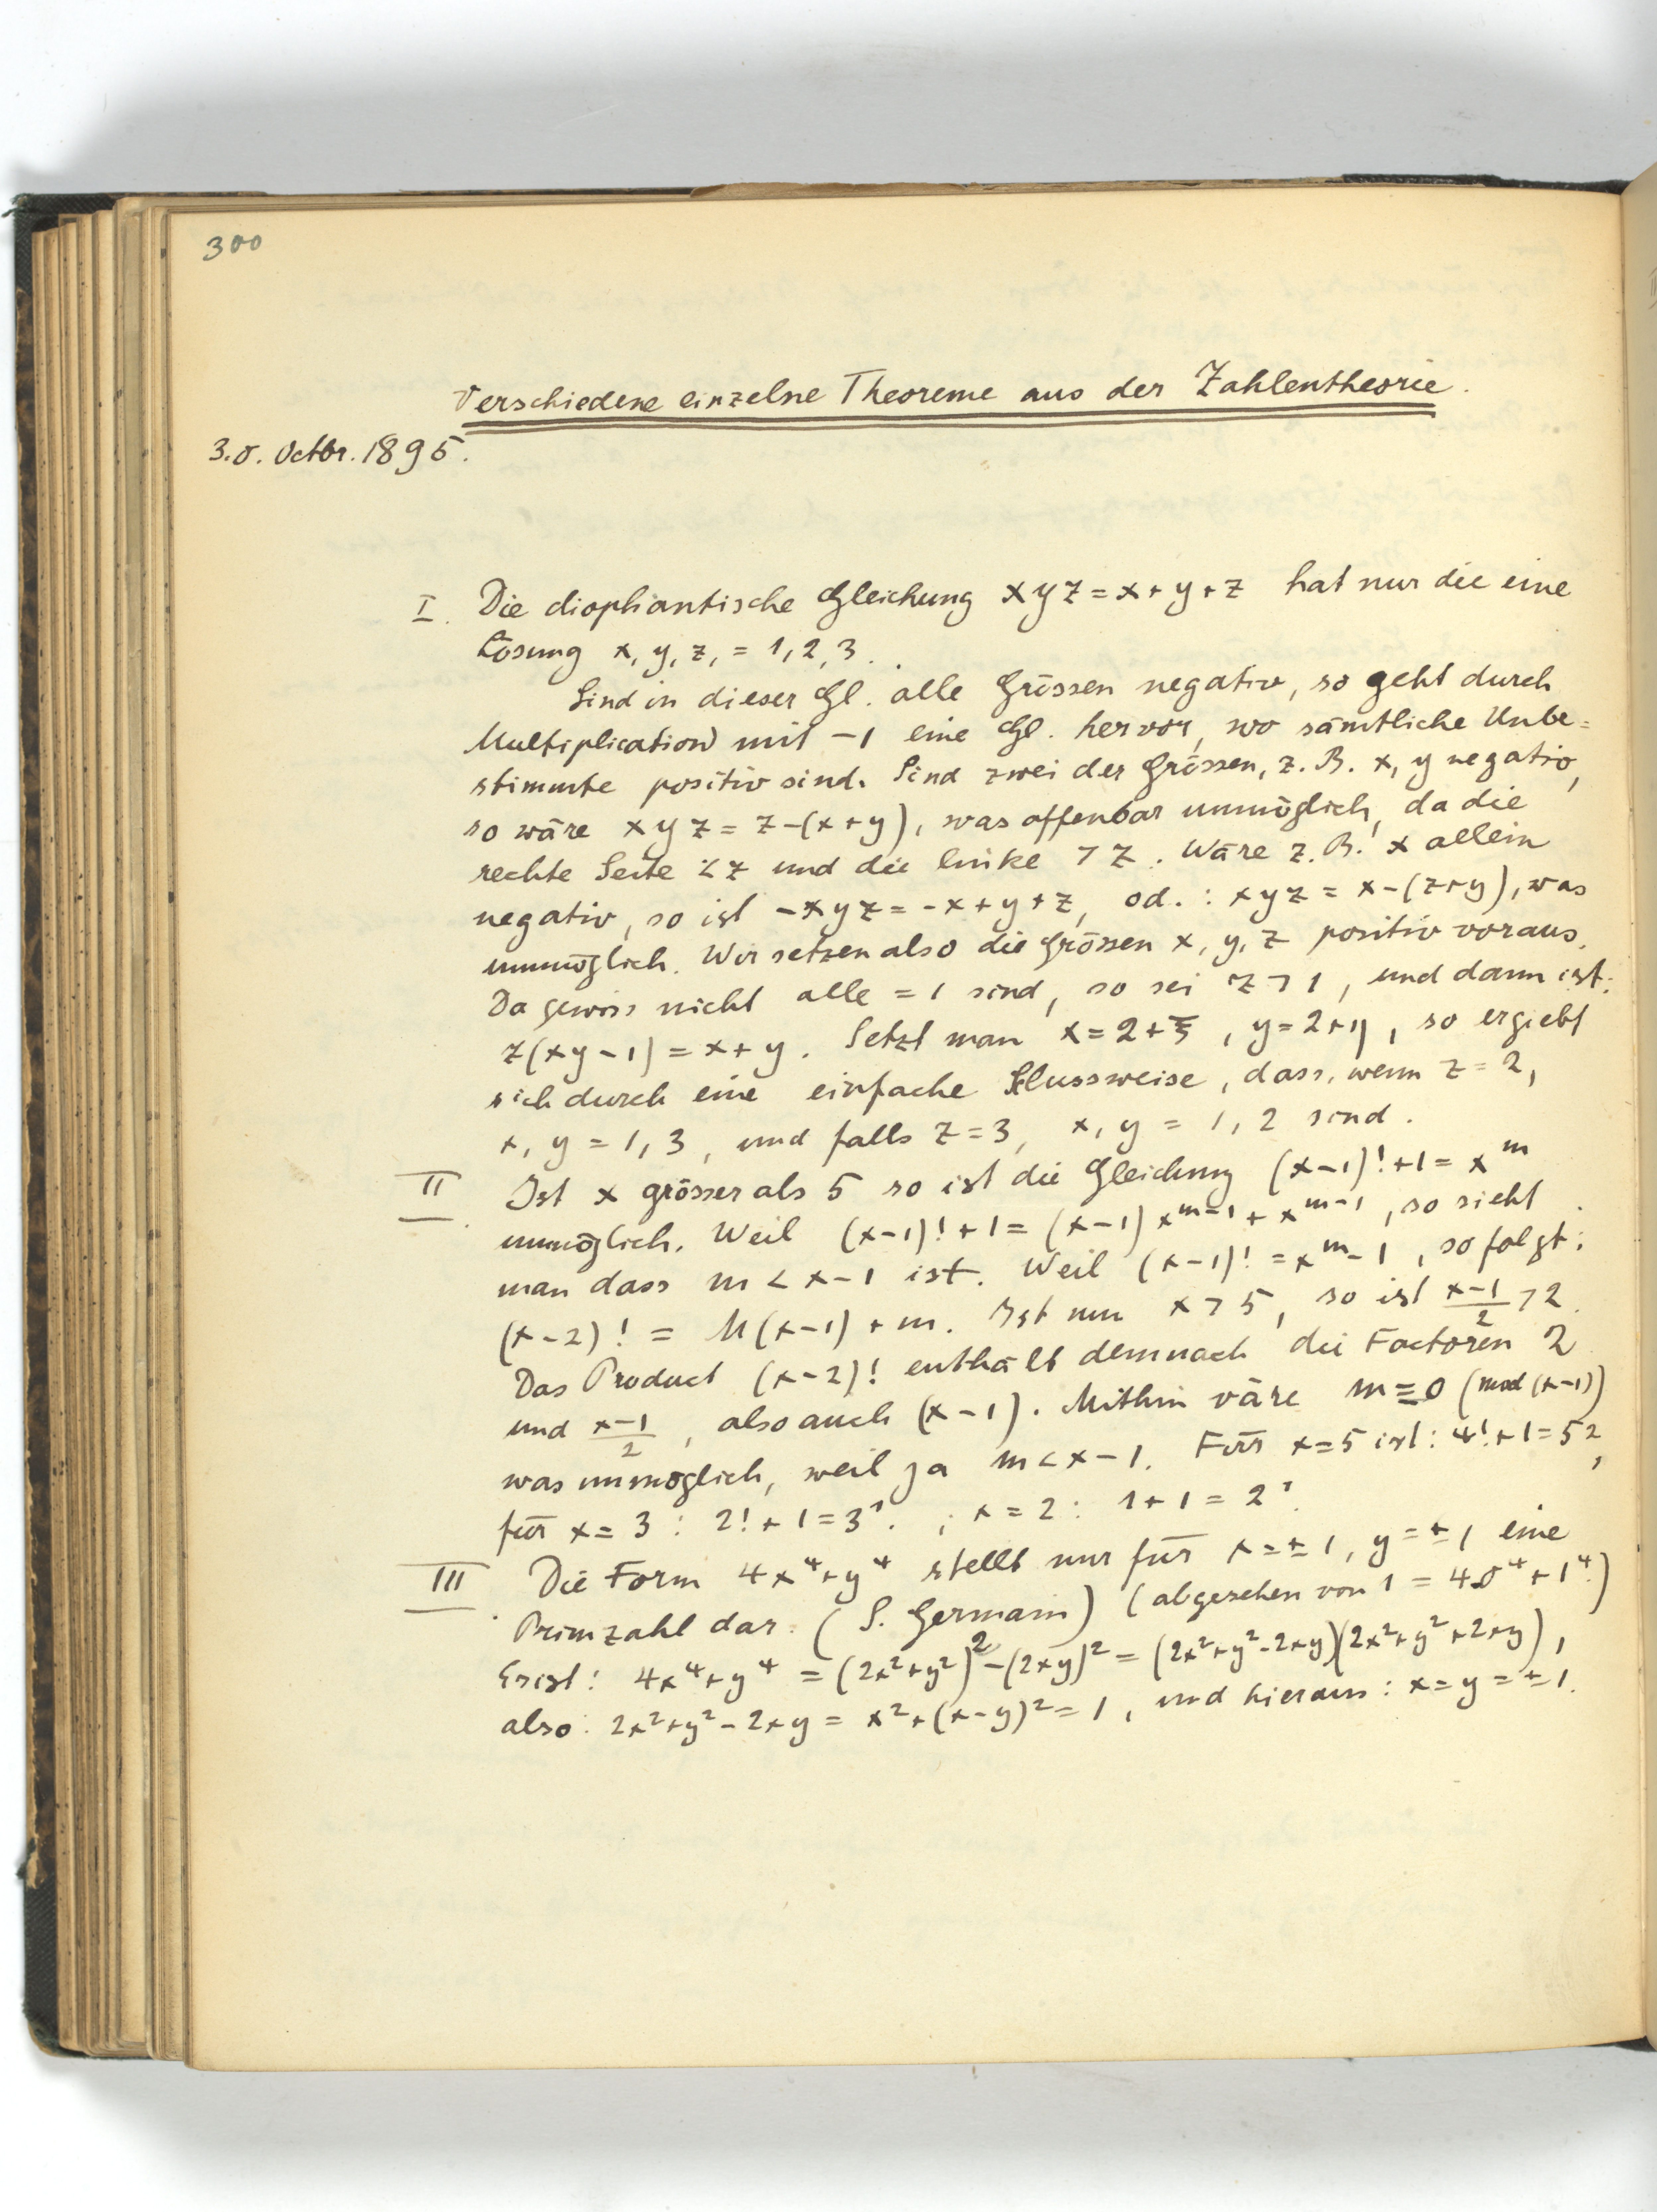 300
Verschiedene einzelne Theoreme aus der Zahlentheorie.
3.0. Octbr. 1895.
I. Die diophantische Gleichung xyz = x+y+z hat nur die eine
Lösung x, y, z, = 1, 2, 3.
Sind in dieser Gl. alle Grössen negativ, so geht durch
Multiplication mit -1 eine Gl. hervor, wo sämtliche Unbe=
stimmte positiv sind. Sind zwei der Grössen, z.B. x, y negativ,
so wäre xyz = z-(x+y), was offenbar unmöglich, da die
rechte Seite < z und die linke > z. Wäre z.B. x allein
negativ, so ist -xyz = -x+y+z, od.: xyz = x-(z+y), was
unmöglich. Wir setzen also die Grössen x, y, z positiv voraus.
Da gewiss nicht alle = 1 sind, so sei z > 1, und dann ist:
z(xy-1) = x+y. Setzt man x = 2+ξ, y = 2+η, so ergiebt
sich durch eine einfache Slussweise, dass, wenn z = 2,
x, y = 1, 3, und falls z = 3, x, y = 1, 2 sind.
II. Ist x grösser als 5 so ist die Gleichung (x-1)!+1 = x^m
unmöglich. Weil (x-1)!+1 = (x-1)x^{m-1}+x^{m-1}, so sieht
man dass m < x-1 ist. Weil (x-1)! = x^m-1, so folgt:
(x-2)! = M(x-1)+m. Ist nun x > 5, so ist \frac{x-1}{2} > 2.
Das Product (x-2)! enthält demnach die Factoren 2
und \frac{x-1}{2}, also auch (x-1). Mithin wäre m≡0 (mod (x-1))
was unmöglich, weil ja m < x-1. Für x=5 ist: 4!+1=5²,
für x = 3: 2!+1=3¹. ; x = 2: 1+1 = 2¹.
III. Die Form 4x⁴+y⁴ stellt nur für x=±1, y=±1 eine
Primzahl dar. (S. Germain) (abgesehen von 1 = 4.0⁴+1⁴.)
Es ist: 4x⁴+y⁴ = (2x²+y²)²-(2xy)² = (2x²+y²-2xy)(2x²+y²+2xy),
also: 2x²+y²-2xy = x²+(x-y)² = 1, und hieraus: x=y=±1.